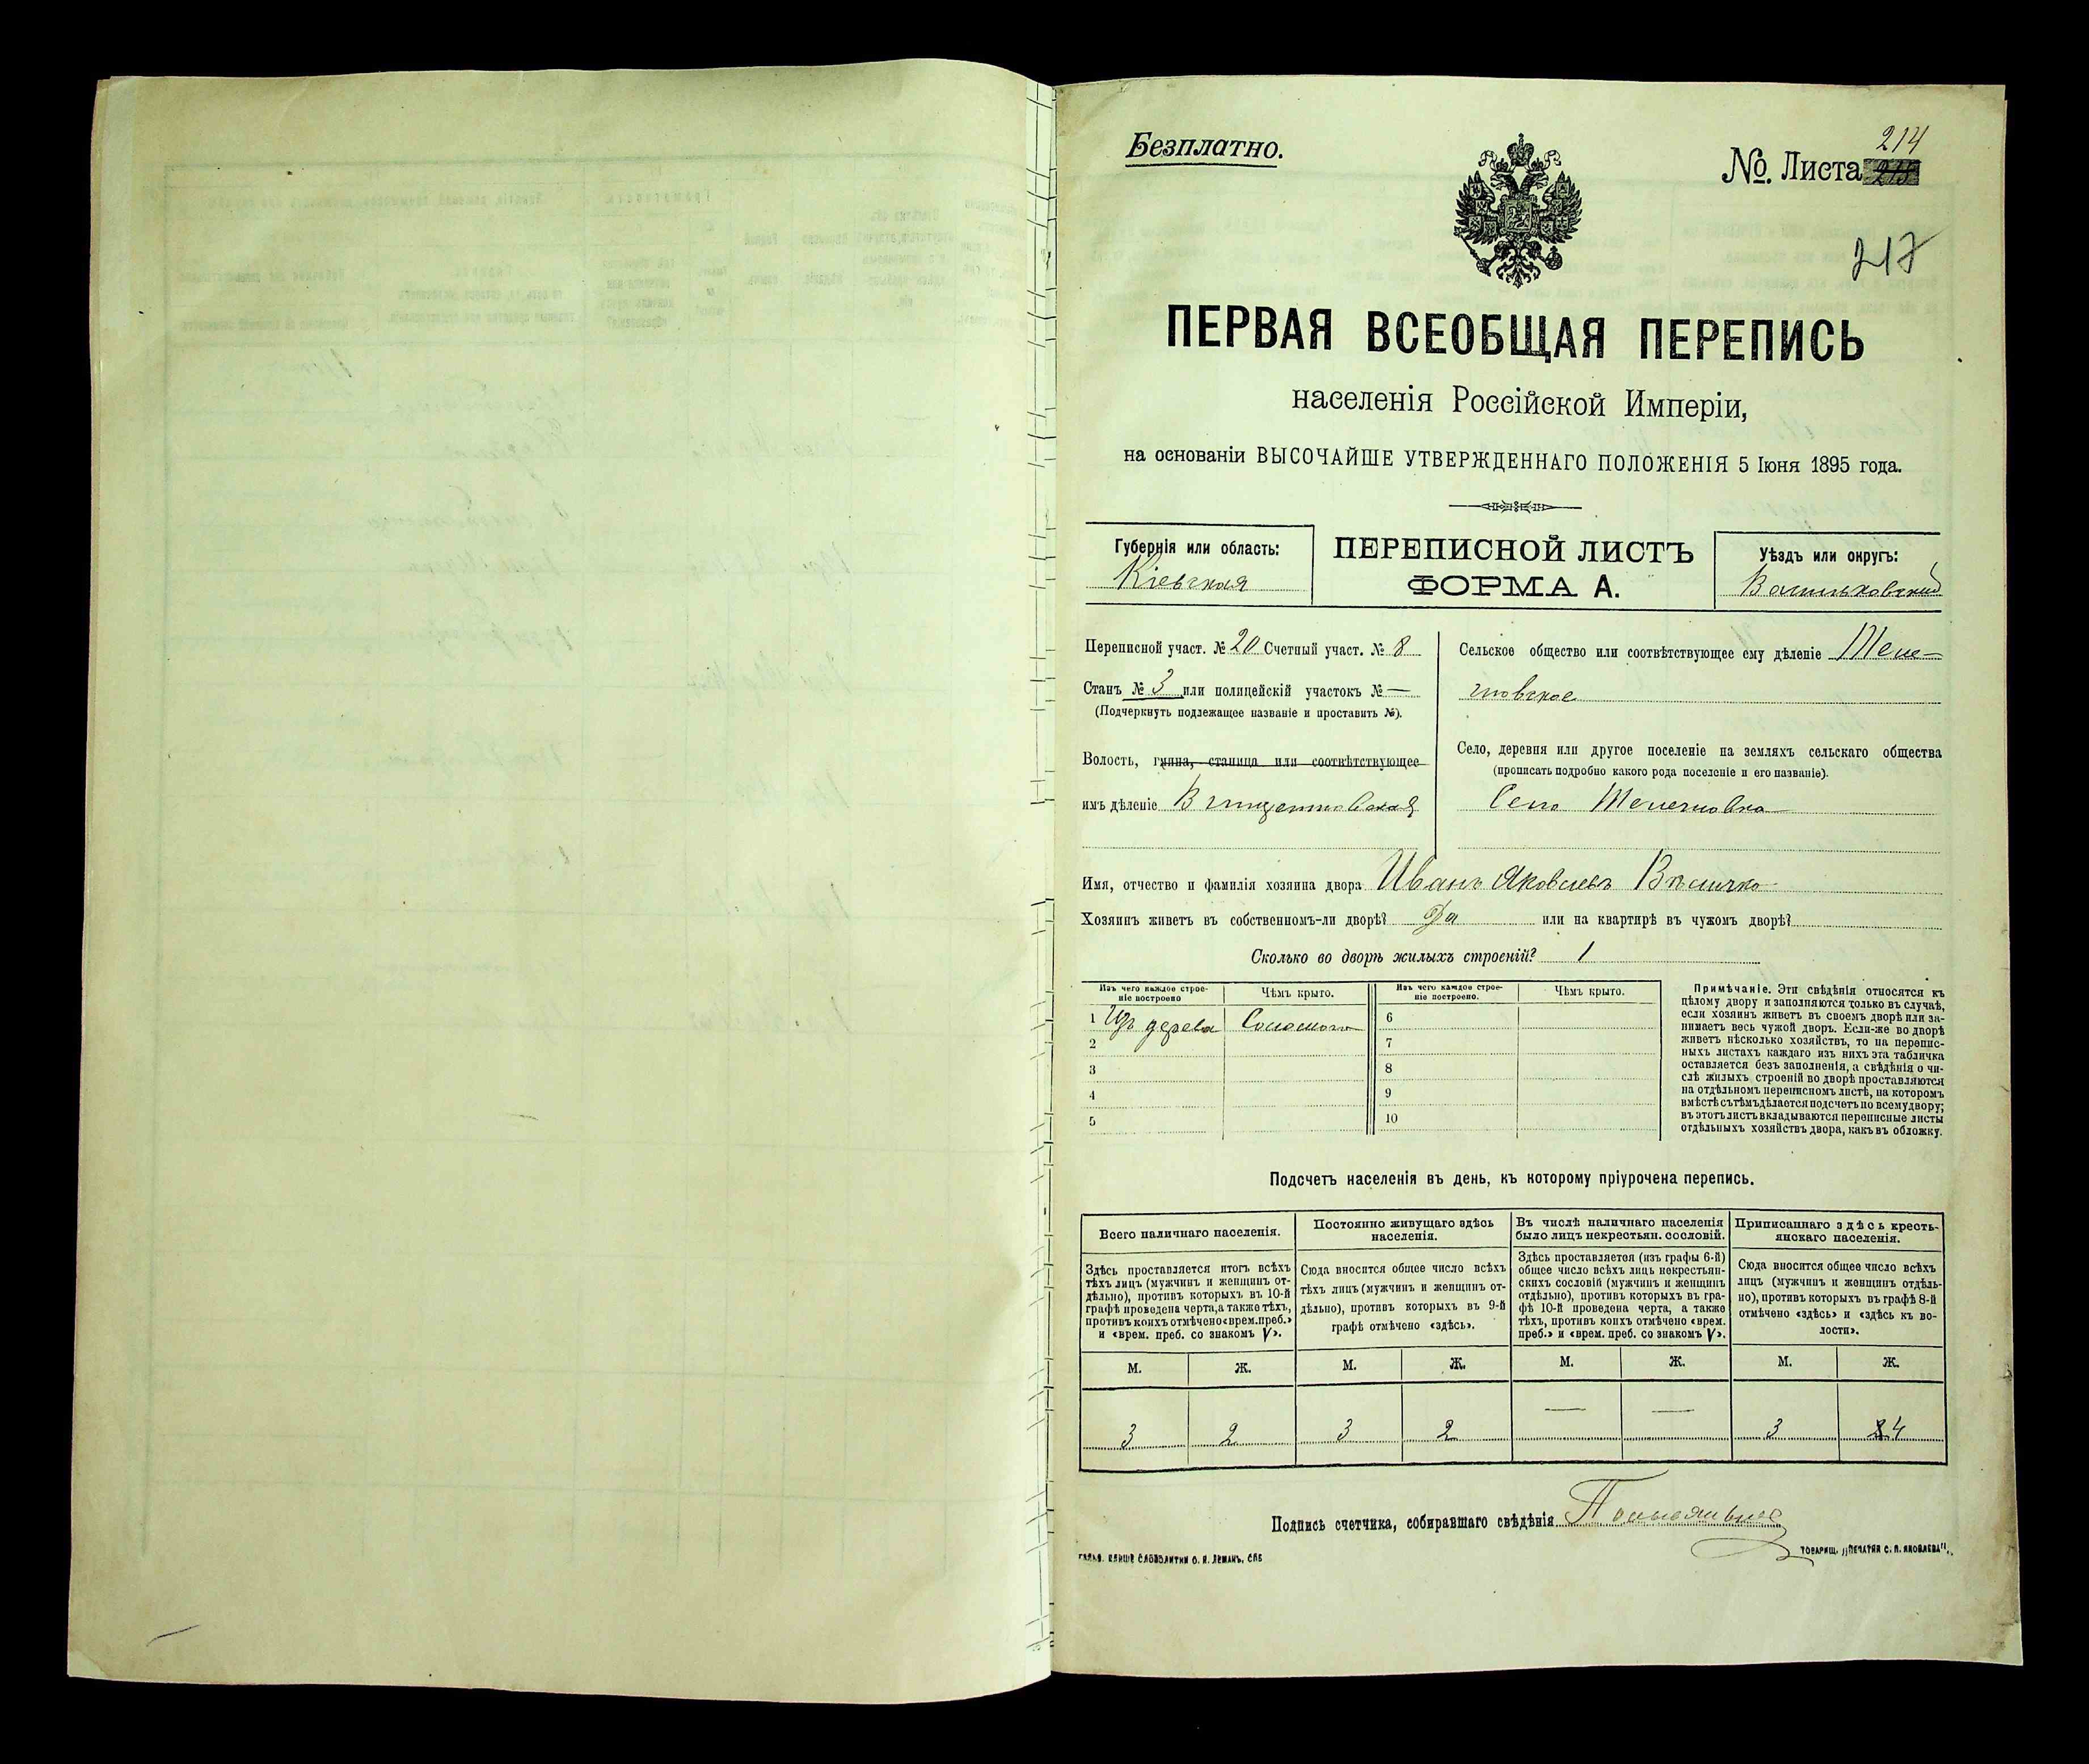 Безплатно.
№. Листа 214
217
ПЕРВАЯ ВСЕОБЩАЯ ПЕРЕПИСЬ
населенія Россійской Имперіи,
на основаніи ВЫСОЧАЙШЕ УТВЕРЖДЕННАГО ПОЛОЖЕНІЯ 5 Іюня 1895 года.
Губернія или область:
Кіевская
ПЕРЕПИСНОЙ ЛИСТЪ
ФОРМА А.
Уѣздъ или округъ:
Васильковскій
Переписной участ. № 20 Счетный участ. № 8
Станъ № 3 или полицейскій участокъ № —
(Подчеркнуть подлежащее названіе и проставить №).
Волость, гмина, станица или соотвѣтствующее
имъ дѣленіе Винцентовская
Сельское общество или соотвѣтствующее ему дѣленіе
Село, деревня или другое поселеніе на земляхъ сельскаго общества
(прописать подробно какого рода поселеніе и его названіе).
Село
Имя, отчество и фамилія хозяина двора Иванъ Яковлевъ Величко
Хозяинъ живетъ въ собственномъ-ли дворѣ? Да или на квартирѣ въ чужомъ дворѣ?
Сколько во дворѣ жилыхъ строеній? 1
Изъ чего каждое строе-
ніе построено
Чѣмъ крыто.
1 Изъ дерева Соломою
2
3
4
5
Изъ чего каждое строе-
ніе построено.
Чѣмъ крыто.
6
7
8
9
10
Примѣчаніе. Эти свѣдѣнія относятся къ
цѣлому двору и заполняются только въ случаѣ,
если хозяинъ живетъ въ своемъ дворѣ или за-
нимаетъ весь чужой дворъ. Если-же во дворѣ
живетъ нѣсколько хозяйствъ, то на перепис-
ныхъ листахъ каждаго изъ нихъ эта табличка
оставляется безъ заполненія, а свѣдѣнія о чи-
слѣ жилыхъ строеній во дворѣ проставляются
на отдѣльномъ переписномъ листѣ, на которомъ
вмѣстѣ съ тѣмъ дѣлается подсчетъ по всему двору;
въ этотъ листъ вкладываются переписные листы
отдѣльныхъ хозяйствъ двора, какъ въ обложку.
Подсчетъ населенія въ день, къ которому пріурочена перепись.
Всего наличнаго населенія.
Здѣсь проставляется итогъ всѣхъ
тѣхъ лицъ (мужчинъ и женщинъ от-
дѣльно), противъ которыхъ въ 10-й
графѣ проведена черта, а также тѣхъ,
противъ коихъ отмѣчено «врем. преб.»
и «врем. преб. со знакомъ V».
М. Ж.
3 2
Постоянно живущаго здѣсь
населенія.
Сюда вносится общее число всѣхъ
тѣхъ лицъ (мужчинъ и женщинъ от-
дѣльно), противъ которыхъ въ 9-й
графѣ отмѣчено «здѣсь».
М. Ж.
3 2
Въ числѣ наличнаго населенія
было лицъ некрестьян. сословій.
Здѣсь проставляется (изъ графы 6-й)
общее число всѣхъ лицъ некрестьян-
скихъ сословій (мужчинъ и женщинъ
отдѣльно), противъ которыхъ въ гра-
фѣ 10-й проведена черта, а также
тѣхъ, противъ коихъ отмѣчено «врем.
преб.» и «врем. преб. со знакомъ V».
М. Ж.
— —
Приписаннаго здѣсь кресть-
янскаго населенія.
Сюда вносится общее число всѣхъ
лицъ (мужчинъ и женщинъ отдѣль-
но), противъ которыхъ въ графѣ 8-й
отмѣчено «здѣсь» и «здѣсь къ во-
лости».
М. Ж.
3 4
Подпись счетчика, собиравшаго свѣдѣнія
КЛИШЕ СЛОВОЛИТНИ О. И. ЛЕМАНЪ. СПБ
ТОВАРИЩ. „ПЕЧАТНЯ С. П. ЯКОВЛЕВА".